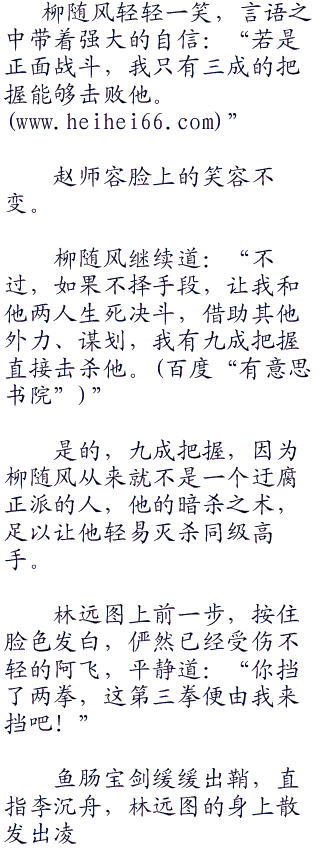 柳随风轻轻一笑，言语之
中带着强大的自信：“若是
正面战斗，我只有三成的把
握能够击败他。
(www.heihei66.com)”
赵师容脸上的笑容不
变。
柳随风继续道：“不
过，如果不择手段，让我和
他两人生死决斗，借助其他
外力、谋划，我有九成把握
直接击杀他。(百度“有意思
书院”)”
是的，九成把握，因为
柳随风从来就不是一个迂腐
正派的人，他的暗杀之术，
足以让他轻易灭杀同级高
手。
林远图上前一步，按住
脸色发白，俨然已经受伤不
轻的阿飞，平静道：“你挡
了两拳，这第三拳便由我来
挡吧！”
鱼肠宝剑缓缓出鞘，直
指李沉舟，林远图的身上散
发出凌